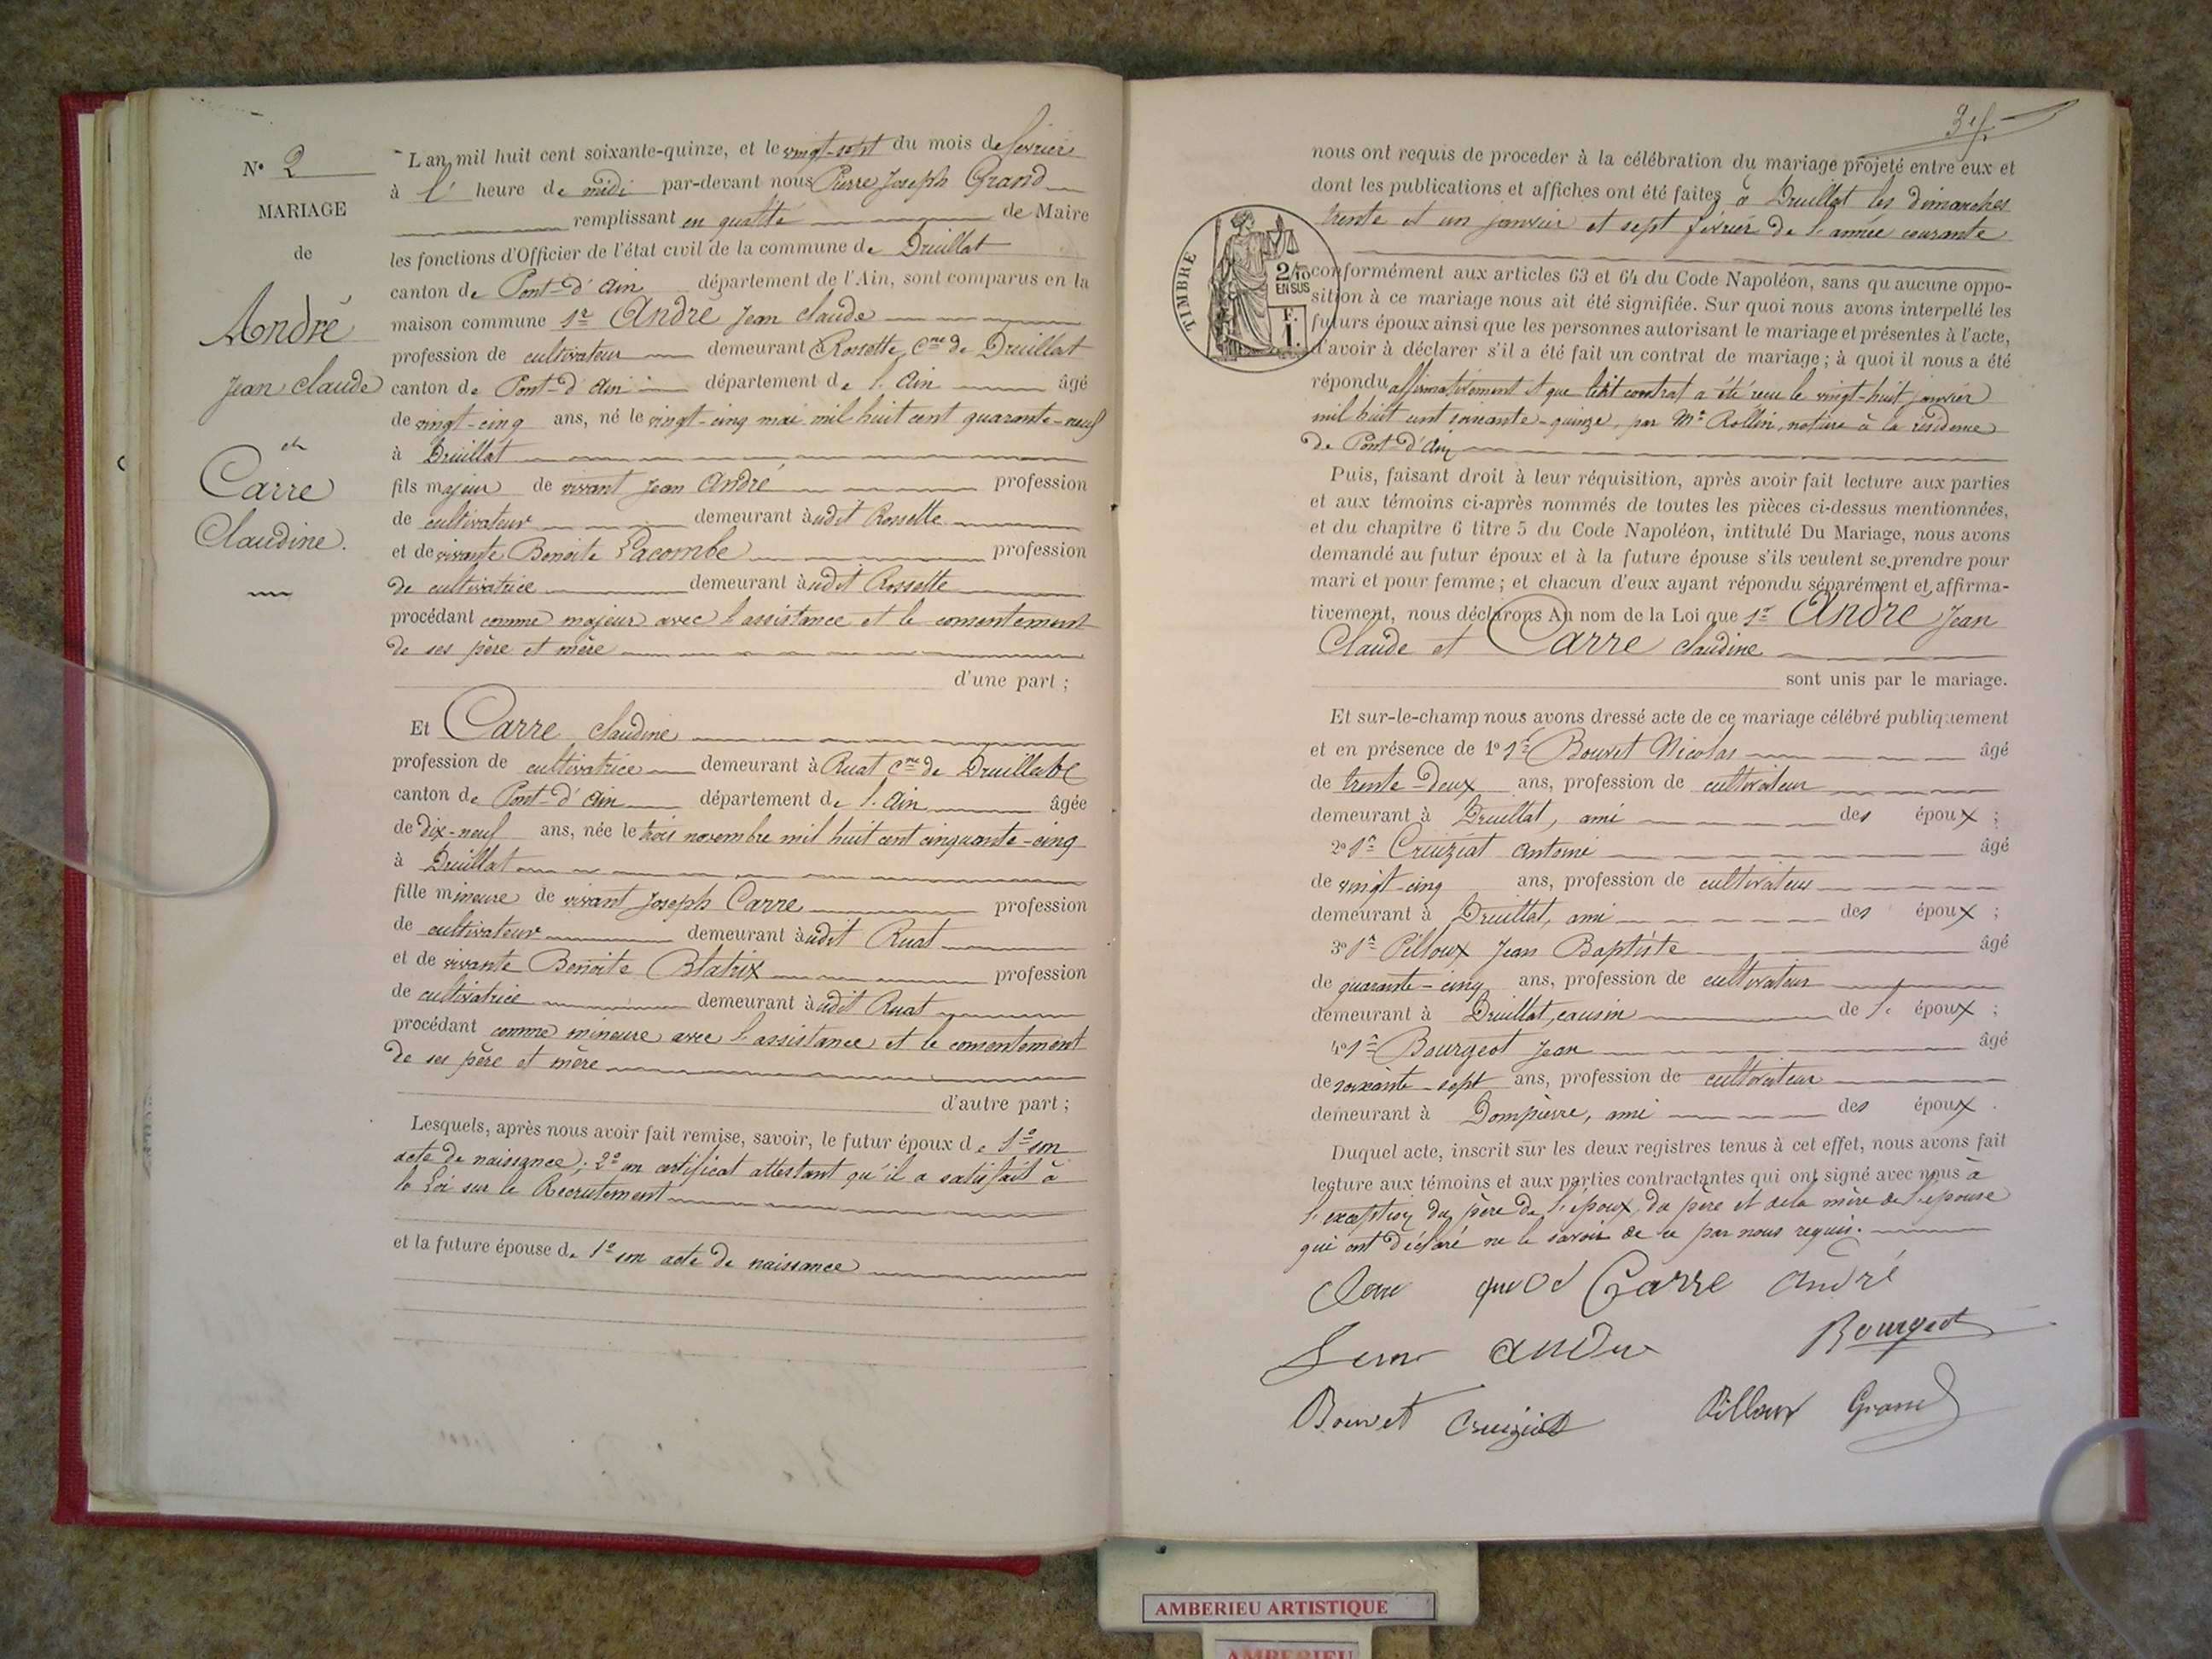 N° 2
MARIAGE
de
André
Jean Claude
et
Carre
Claudine.
L'an mil huit cent soixante-quinze, et le vingt-sept du mois de février
à l' heure de midi par-devant nous Pierre Joseph Grand
remplissant en qualité de Maire
les fonctions d'Officier de l'état civil de la commune de Druillat
canton de Pont-d'Ain département de l'Ain, sont comparus en la
maison commune 1° André Jean Claude
profession de cultivateur demeurant à Rossette, Cne de Druillat
canton de Pont-d'Ain département de l'Ain âgé
de vingt-cinq ans, né le vingt-cinq mai mil huit cent quarante-neuf
à Druillat
fils majeur de vivant Jean André profession
de cultivateur demeurant audit Rossette
et de vivante Benoite Lacombe profession
de cultivatrice demeurant audit Rossette
procédant comme majeur avec l'assistance et le consentement
de ses père et mère
d'une part ;
Et Carre Claudine
profession de cultivatrice demeurant à Ruat Cne de Druillat
canton de Pont-d'Ain département de l'Ain âgée
de dix-neuf ans, née le trois novembre mil huit cent cinquante-cinq
à Druillat
fille mineure de vivant Joseph Carre profession
de cultivateur demeurant audit Ruat
et de vivante Benoite Blatrix profession
de cultivatrice demeurant audit Ruat
procédant comme mineure avec l'assistance et le consentement
de ses père et mère
d'autre part ;
Lesquels, après nous avoir fait remise, savoir, le futur époux de 1° son
acte de naissance ; 2° un certificat attestant qu'il a satisfait à
la Loi sur le Recrutement
et la future épouse de 1° son acte de naissance
nous ont requis de proceder à la célébration du mariage projeté entre eux et
dont les publications et affiches ont été faites à Druillat les dimanches
trente et un janvier et sept février de l'année courante
TIMBRE
2/10
EN SUS
F.
1.
conformément aux articles 63 et 64 du Code Napoléon, sans qu'aucune oppo-
sition à ce mariage nous ait été signifiée. Sur quoi nous avons interpellé les
futurs époux ainsi que les personnes autorisant le mariage et présentes à l'acte,
d'avoir à déclarer s'il a été fait un contrat de mariage ; à quoi il nous a été
répondu affirmativement et que ledit contrat a été reçu le vingt-huit janvier
mil huit cent soixante-quinze, par Me Rollin, notaire à la résidence
de Pont-d'Ain
Puis, faisant droit à leur réquisition, après avoir fait lecture aux parties
et aux témoins ci-après nommés de toutes les pièces ci-dessus mentionnées,
et du chapitre 6 titre 5 du Code Napoléon, intitulé Du Mariage, nous avons
demandé au futur époux et à la future épouse s'ils veulent se prendre pour
mari et pour femme ; et chacun d'eux ayant répondu séparément et affirma-
tivement, nous déclarons Au nom de la Loi que André Jean
Claude et Carre Claudine
sont unis par le mariage.
Et sur-le-champ nous avons dressé acte de ce mariage célébré publiquement
et en présence de 1° Bouvet Nicolas âgé
de trente-deux ans, profession de cultivateur
demeurant à Druillat, ami des époux ;
2° Cruiziat Antoine âgé
de vingt-cinq ans, profession de cultivateur
demeurant à Druillat, ami des époux ;
3° Pilloux Jean Baptiste âgé
de quarante-cinq ans, profession de cultivateur
demeurant à Druillat, cousin de l' époux ;
4° Bourgeot Jean âgé
de soixante-sept ans, profession de cultivateur
demeurant à Dompierre, ami des époux.
Duquel acte, inscrit sur les deux registres tenus à cet effet, nous avons fait
lecture aux témoins et aux parties contractantes qui ont signé avec nous à
l'exception du père de l'époux, du père et de la mère de l'épouse
qui ont déclaré ne le savoir de ce par nous requis.
Carre André
Bourgeot
Bouvet Cruiziat Pilloux Grand
AMBERIEU ARTISTIQUE
AMBERIEU